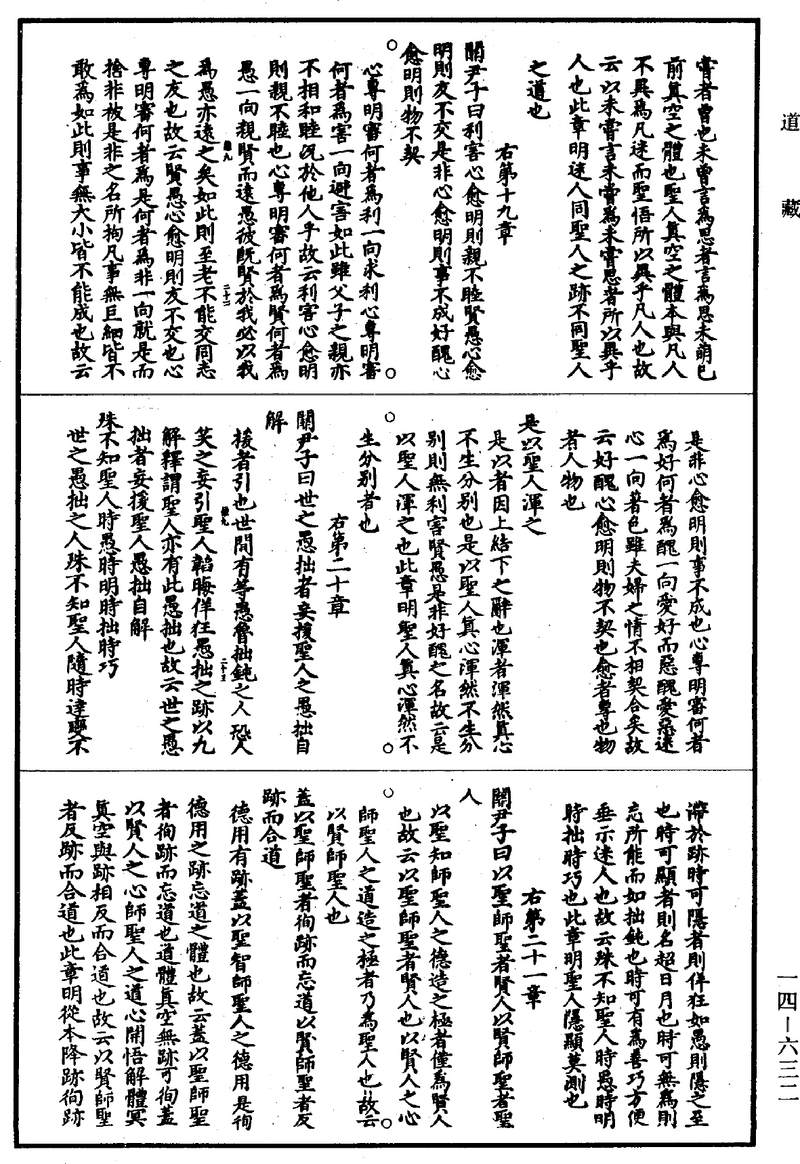 道藏
嘗者曾也未曾言為思者言為思未萌已
前真空之體也聖人真空之體本與凡人
不異為凡迷而聖悟所以異乎凡人也故
云以未嘗言未嘗為未嘗思者所以異乎
人也此章明迷人同聖人之跡不同聖人
之道也
右第十九章
關尹子曰利害心愈明則親不睦賢愚心愈
明則友不交是非心愈明則事不成好醜心
愈明則物不契
心專明審何者為利一向求利心專明審
何者為害一向避害如此雖父子之親亦
不相和睦況於他人乎故云利害心愈明
則親不睦也心專明審何者為賢何者為
愚一向親賢而遠愚彼既賢於我必以我
為愚亦遠之矣如此則至老不能交同志
之友也故云賢愚心愈明則友不交也心
專明審何者為是何者為非一向就是而
捨非被是非之名所拘凡事無巨細皆不
敢為如此則事無大小皆不能成也故云
是非心愈明則事不成也心專明審何者
為好何者為醜一向愛好而惡醜愛惡迷
心一向著色雖夫婦之情不相契合矣故
云好醜心愈明則物不契也愈者專也物
者人物也
是以聖人渾之
是以者因上結下之辭也渾者渾然真心
不生分別也是以聖人真心渾然不生分
別則無利害賢愚是非好醜之名故云是
以聖人渾之也此章明聖人真心渾然不
生分別者也
右第二十章
關尹子曰世之愚拙者妄援聖人之愚拙自
解
援者引也世間有等愚魯拙鈍之人恐人
笑之妄引聖人韜晦佯狂愚拙之跡以九
解釋謂聖人亦有此愚拙也故云世之愚
拙者妄援聖人愚拙自解
殊不知聖人時愚時明時拙時巧
世之愚拙之人殊不知聖人隨時達變不
滯於跡時可隱者則佯狂如愚則隱之至
也時可顯者則名超日月也時可無為則
忘所能而如拙鈍也時可有為善巧方便
垂示迷人也故云殊不知聖人時愚時明
時拙時巧也此章明聖人隱顯莫測也
右第二十一章
關尹子曰以聖師聖者賢人以賢師聖者聖
人
以聖知師聖人之德造之極者僅為賢人
也故云以聖師聖者賢人也以賢人之心
師聖人之道造之極者乃為聖人也故云
以賢師聖人也
蓋以聖師聖者徇跡而忘道以賢師聖者反
跡而合道
德用有跡蓋以聖智師聖人之德用是徇
德用之跡忘道之體也故云蓋以聖師聖
者徇跡而忘道也道體真空無跡可徇蓋
以賢人之心師聖人之道心開悟解體冥
真空與跡相反而合道也故云以賢師聖
者反跡而合道也此章明從本降跡徇跡
一四－六三二